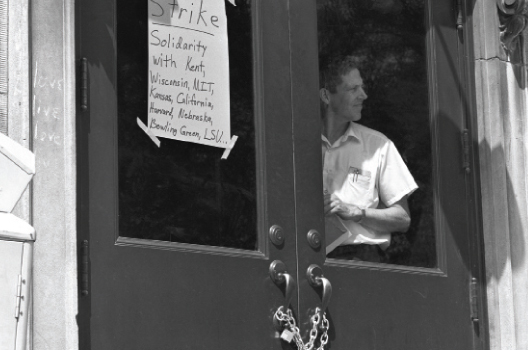 Strike
Solidarity
with Kent,
Wisconsin, MIT,
Kansas, California,
Harvard, Nebraska,
Bowling Green, LSU...